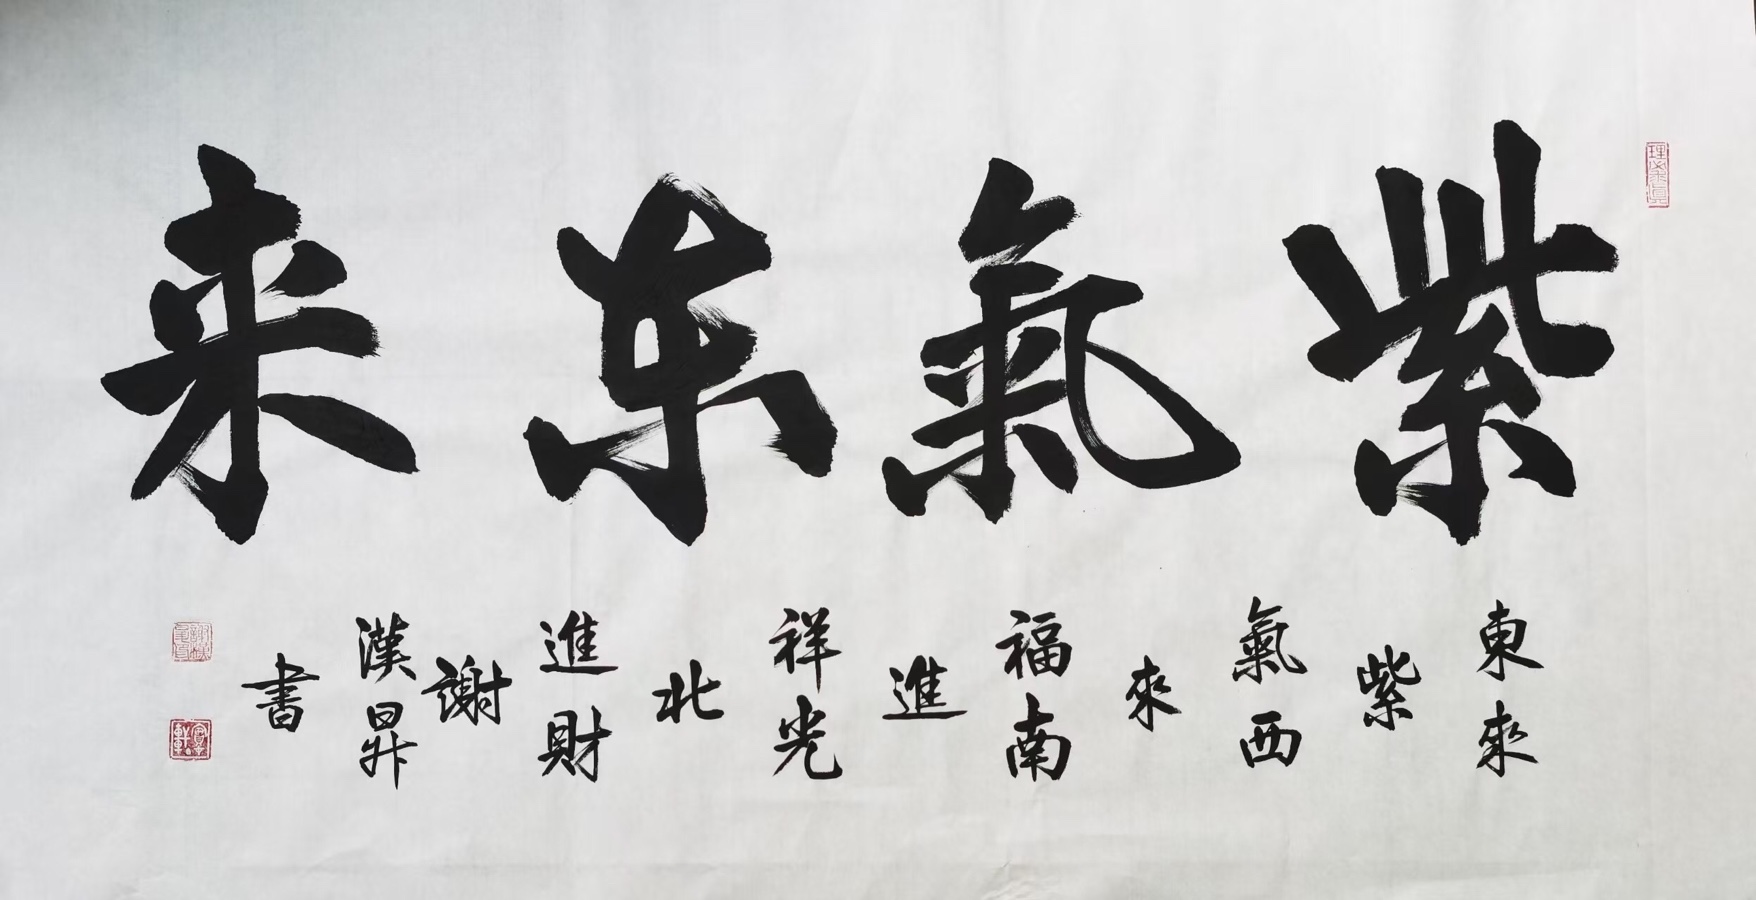 紫氣東来
東來紫氣西來福南進祥光北進財
謝漢昇書